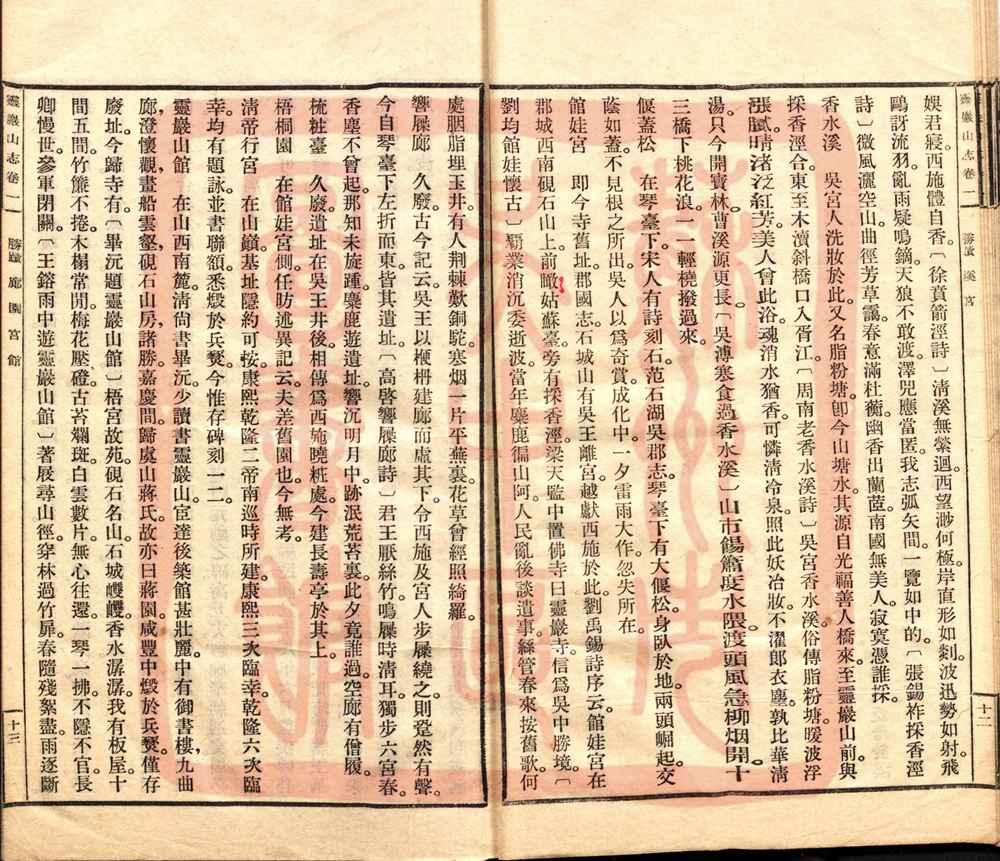 靈巖山志卷一
勝蹟 溪 宮
十二
娛君寢西施體自香。〔徐賁箭涇詩〕清溪無縈迴。西望渺何極。岸直形如剡。波迅勢如射。飛
鷗訝流羽。亂雨疑鳴鏑。天狼不敢渡。澤兕應當匿。我志弧矢間。一覽如中的。〔張錫祚採香涇
詩〕微風灑空山。曲徑芳草靄。春意滿杜蘅。幽香出蘭茝。南國無美人。寂寞憑誰採。
香水溪　　吳宮人洗妝於此。又名脂粉塘。卽今山塘水。其源自光福善人橋來。至靈巖山前。與
採香涇合。東至木瀆斜橋口入胥江。〔周南老香水溪詩〕吳宮香水溪。俗傳脂粉塘。暖波浮
漲膩。晴渚泛紅芳。美人曾此浴。魂消水猶香。可憐清冷泉。照此妖冶妝。不濯郎衣塵。孰比華清
湯。只今開寶林。曹溪源更長。〔吳溥寒食過香水溪〕山市餳簫度水隈。渡頭風急柳烟開。十
三橋下桃花浪。一一輕橈撥過來。
偃蓋松　　在琴臺下。宋人有詩刻石。范石湖吳郡志。琴臺下有大偃松。身臥於地。兩頭崛起。交
蔭如蓋。不見根之所出。吳人以爲奇賞。成化中。一夕雷雨大作。忽失所在。
館娃宮　　即今寺舊址。郡國志。石城山有吳王離宮。越獻西施於此。劉禹錫詩序云。館娃宮在
郡城西南硯石山上。前瞰姑蘇臺。旁有採香涇。梁天監中置佛寺曰靈巖寺。信爲吳中勝境。〔
劉均館娃懷古〕霸業消沉委逝波。當年麋鹿徧山阿。人民亂後談遺事。絲管春來按舊歌。何
處胭脂埋玉井。有人荆棘歎銅駝。寒烟一片平蕪裏。花草曾經照綺羅。
響屧廊　　久廢。古今記云。吳王以楩枏建廊而虛其下。令西施及宮人步屧繞之。則跫然有聲。
今自琴臺下左折而東。皆其遺址。〔高啓響屧廊詩〕君王厭絲竹。鳴屧時清耳。獨步六宮春。
香塵不曾起。那知未旋踵。麋鹿遊遺址。響沉明月中。跡泯荒苔裏。此夕竟誰過。空廊有僧履。
梳粧臺　　久廢。遺址在吳王井後。相傳爲西施曉粧處。今建長壽亭於其上。
梧桐園　　在館娃宮側。任昉述異記云。夫差舊園也。今無考。
清帝行宮　　在山巔。基址隱約可按。康熙乾隆二帝南巡時所建。康熙三次臨幸。乾隆六次臨
幸。均有題詠。並書聯額。悉燬於兵燹。今惟存碑刻一二。
靈巖山館　　在山西南麓。清尙書畢沅少讀書靈巖山。宦達後築館甚壯麗。中有御書樓，九曲
廊，澄懷觀，畫船雲壑，硯石山房諸勝。嘉慶間。歸虞山蔣氏。故亦曰蔣園。咸豐中燬於兵燹。僅存
廢址。今歸寺有。〔畢沅題靈巖山館〕梧宮故苑。硯石名山。石城巉巉。香水潺潺。我有板屋。十
間五間。竹簾不捲。木榻常閒。梅花壓磴。古苔斓斑。白雲數片。無心往還。一琴一拂。不隱不官。長
卿慢世。參軍閉關。〔王鎔雨中遊靈巖山館〕著屐尋山徑。穿林過竹扉。春隨殘絮盡。雨逐斷
靈巖山志卷一
勝蹟 廊 園 宮 館
十三